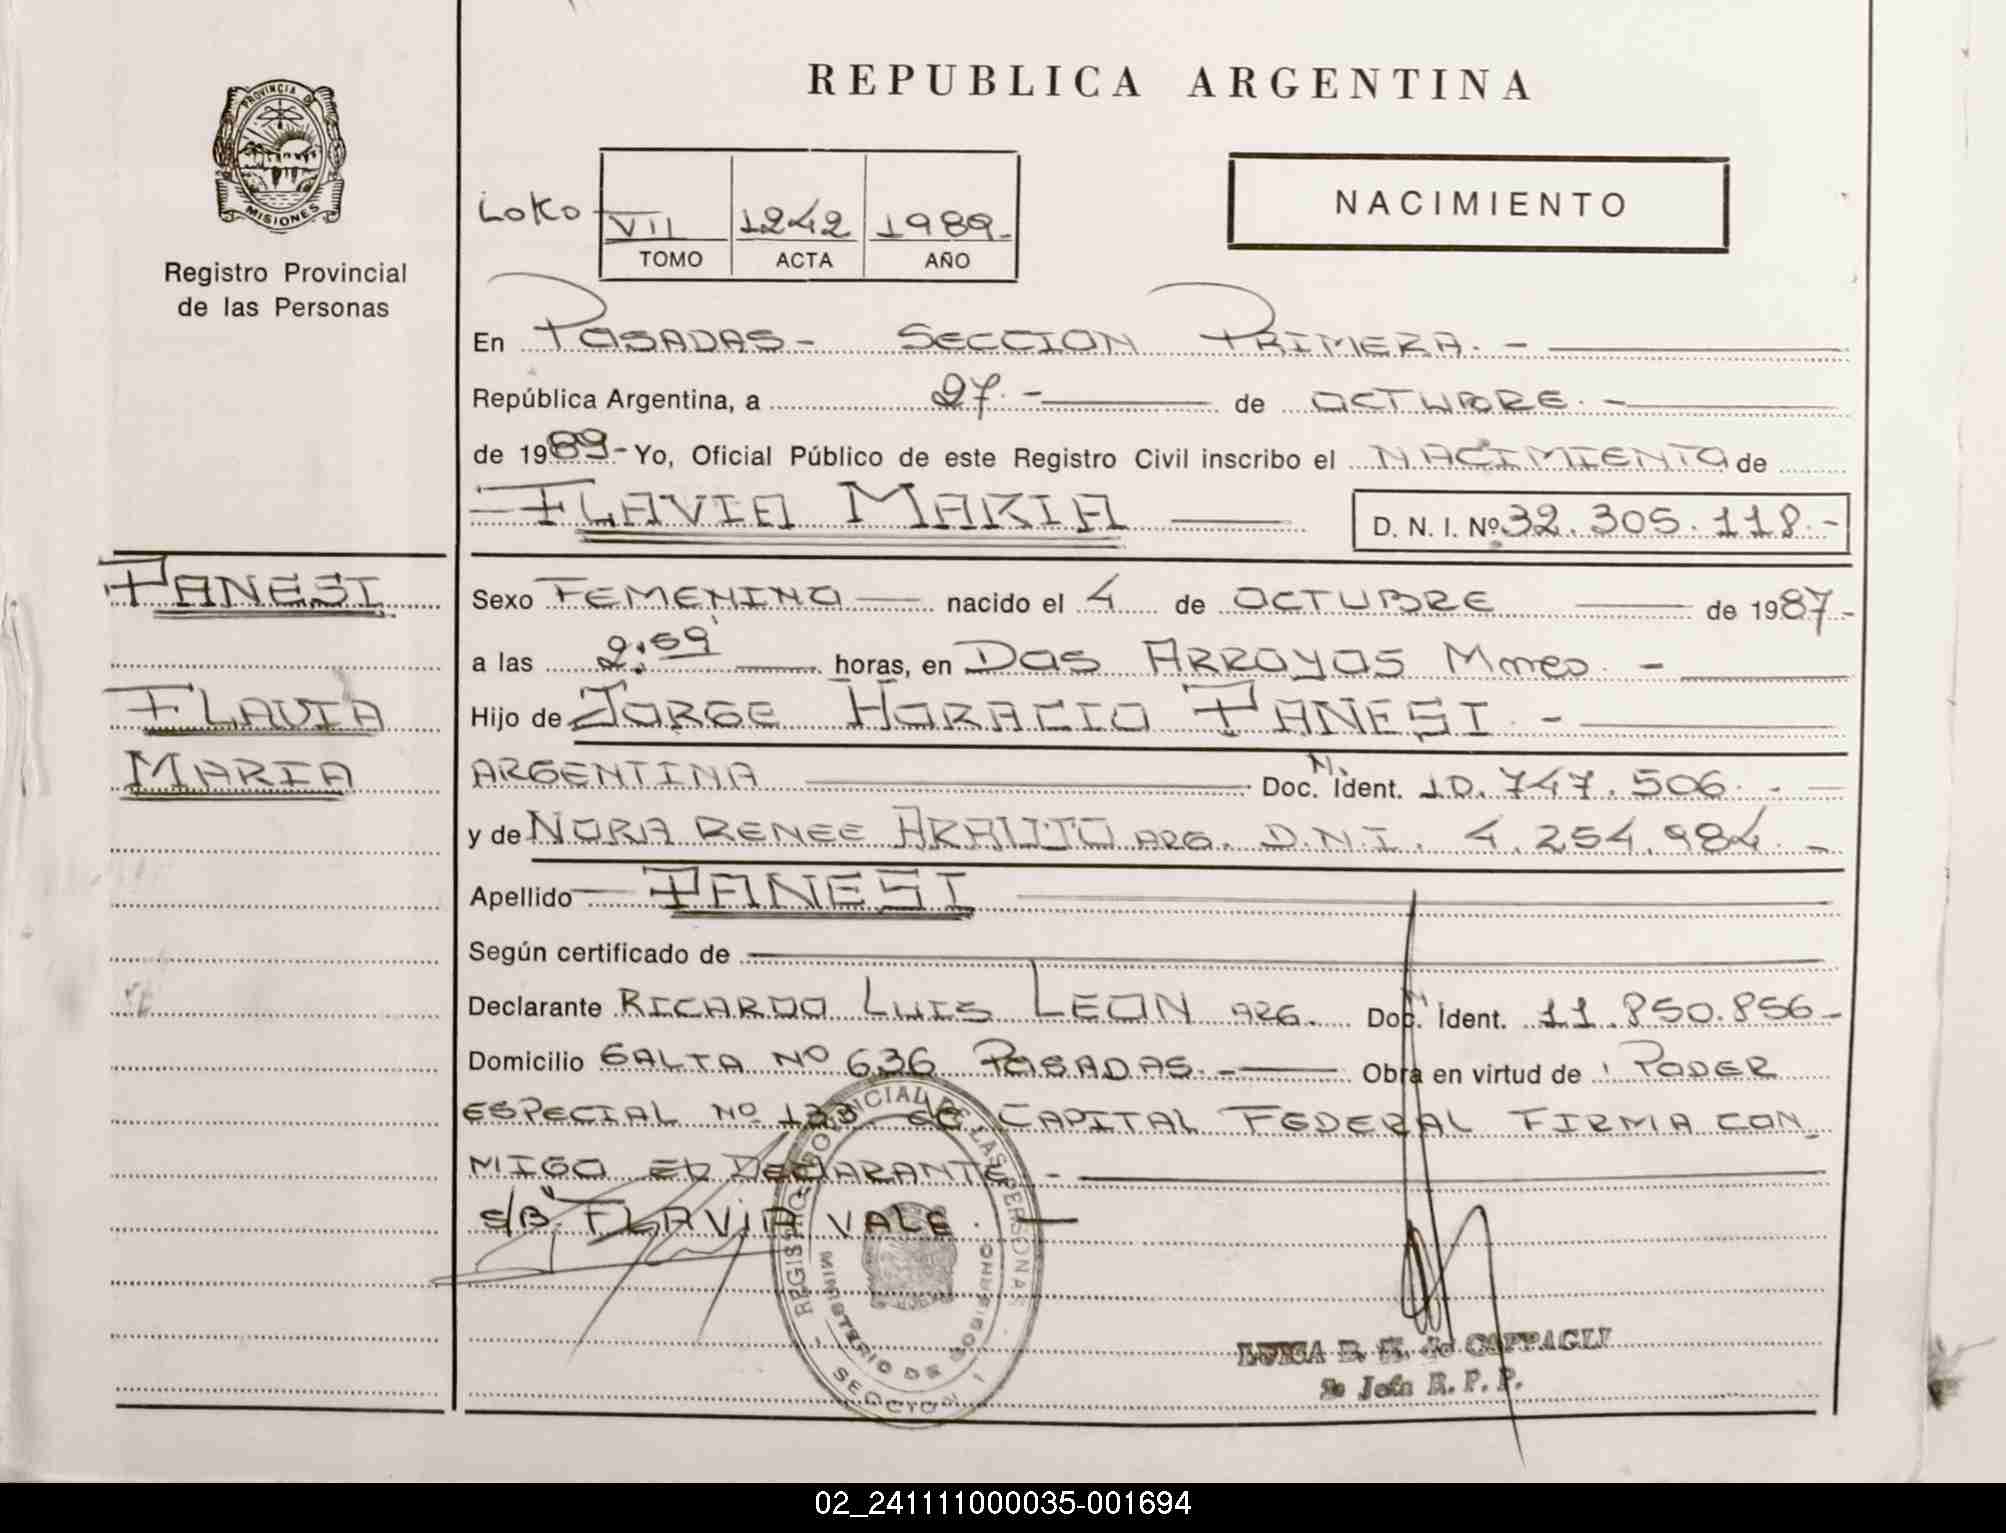 REPUBLICA ARGENTINA
PROVINCIA DE
MISIONES
Registro Provincial
de las Personas
NACIMIENTO
VII 1242 1989.-
TOMO ACTA AÑO
En POSADAS- SECCION PRIMERA.-
República Argentina, a 27.- de OCTUBRE.-
de 1989- Yo, Oficial Público de este Registro Civil inscribo el NACIMIENTO de
FLAVIA MARIA
D. N. I. Nº 32.305.118.-
PANESI
FLAVIA
MARIA
Sexo FEMENINO nacido el 4 de OCTUBRE de 1987.-
a las 2:59' horas, en Dos ARROYOS Mnes.-
Hijo de JORGE HORACIO PANESI.-
ARGENTINA Doc. N. Ident. 10.747.506.-
y de NORA RENEE ARAUJO ARG. D.N.I. 4.254.984.-
Apellido PANESI
Según certificado de
Declarante RICARDO LUIS LEON ARG. Doc. N Ident. 11.850.856-
Domicilio SALTA Nº 636 POSADAS.- Obra en virtud de PODER
ESPECIAL Nº 133 CAPITAL FEDERAL FIRMA CON
MIGO EL DECLARANTE.-
S/B "FLAVIA VALE.
REGISTRO PROVINCIAL DE LAS PERSONAS
MINISTERIO DE GOBIERNO
SECCION 1
LUISA E. de COPPAGLI
Jefa R. P. P.
02_241111000035-001694